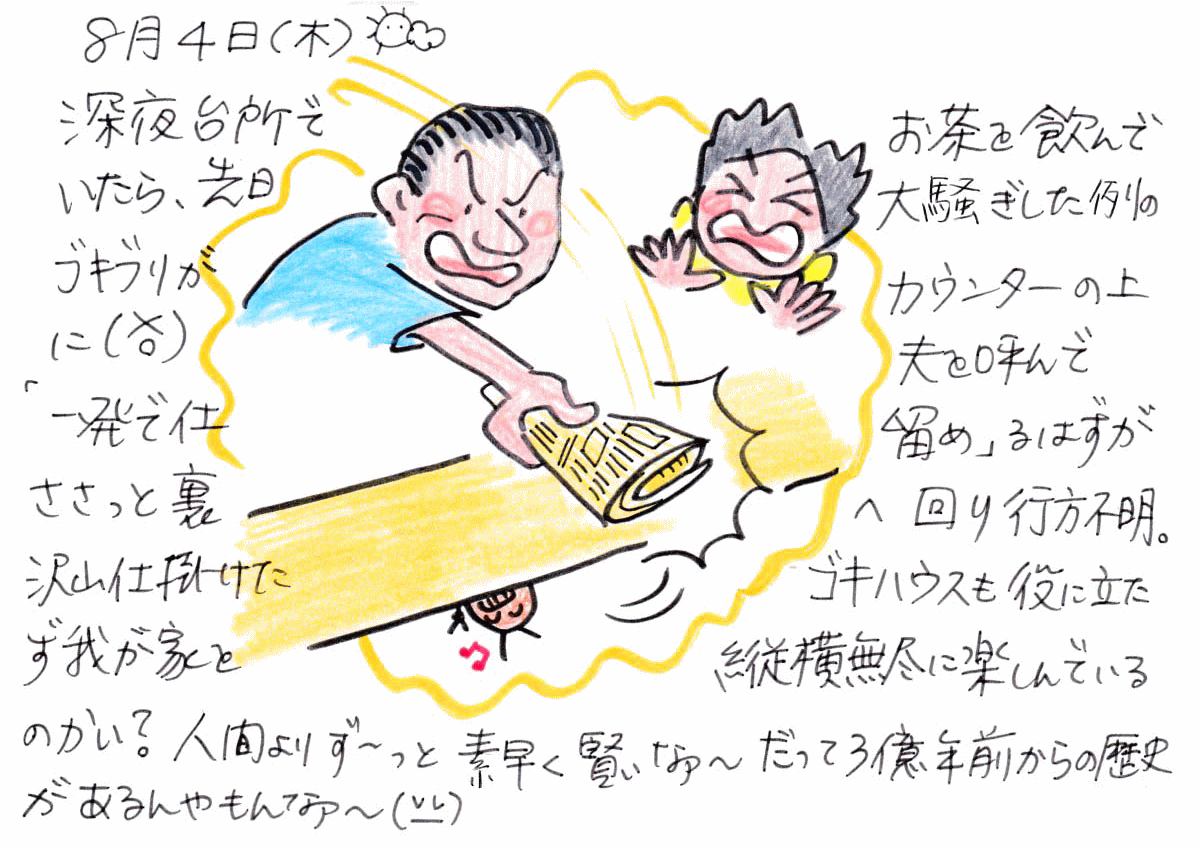 8月4日(木)
深夜台所で お茶を飲んで
いたら、先日 大騒ぎした例の
ゴキブリが カウンターの上
に(××) 夫を呼んで
「一発で仕 留め」るはずが
ささっと裏 へ回り行方不明。
沢山仕掛けた ゴキハウスも役に立た
ず我が家を 縦横無尽に楽しんでいる
のかい?人間よりず〜っと素早く賢いなァ〜だって3億年前からの歴史
があるんやもんなァ〜